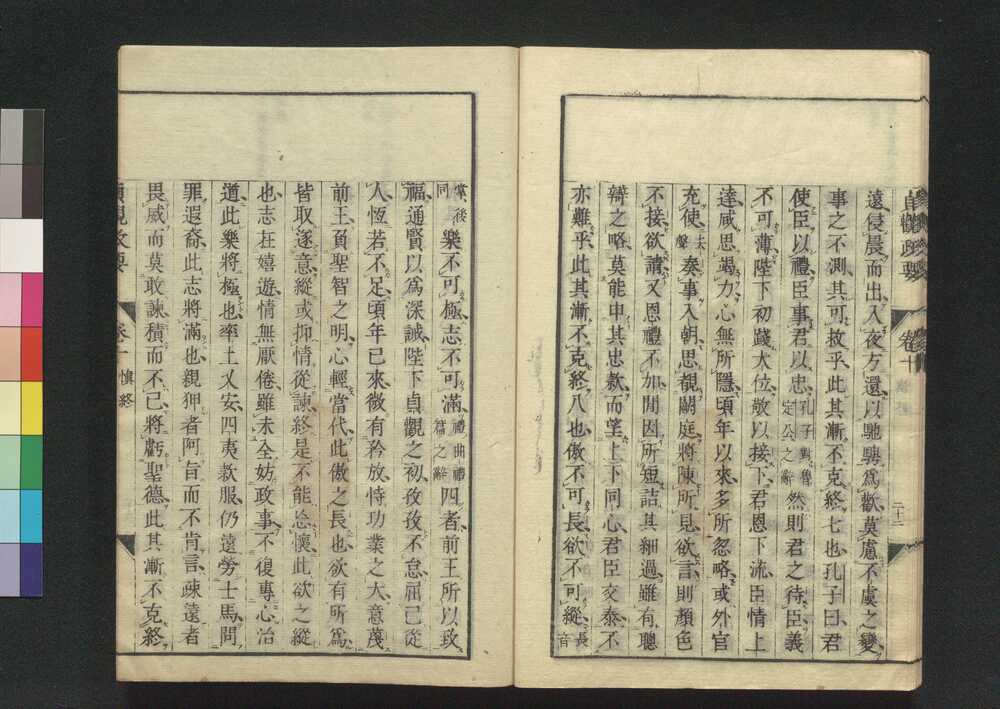 貞觀政要　卷十
遠侵晨而出入夜方還以馳騁爲歡莫慮不虞之變
事之不測其可救乎此其漸不克終七也孔子曰君
使臣以禮臣事君以忠孔子對魯定公之辭然則君之待臣義
不可薄陛下初踐大位敬以接下君恩下流臣情上
達咸思竭力心無所隱頃年以來多所忽略或外官
充使去聲奏事入朝思覩闕庭將陳所見欲言則顏色
不接欲請又恩禮不加間因所短詰其細過雖有聰
辯之略莫能申其忠款而望上下同心君臣交泰不
亦難乎此其漸不克終八也傲不可長欲不可縱長音
掌後同樂不可極志不可滿禮曲禮篇之辭四者前王所以致
福通賢以爲深誡陛下貞觀之初孜孜不怠屈己從
人恆若不足頃年已來微有矜放恃功業之大意蔑
前王負聖智之明心輕當代此傲之長也欲有所爲
皆取遂意縱或抑情從諫終是不能忘懷此欲之縱
也志在嬉遊情無厭倦雖未全妨政事不復專心治
道此樂將極也率土乂安四夷款服仍遠勞士馬問
罪遐裔此志將滿也親狎者阿旨而不肯言疎遠者
畏威而莫敢諫積而不已將虧聖德此其漸不克終
貞觀政要　卷十　慎終